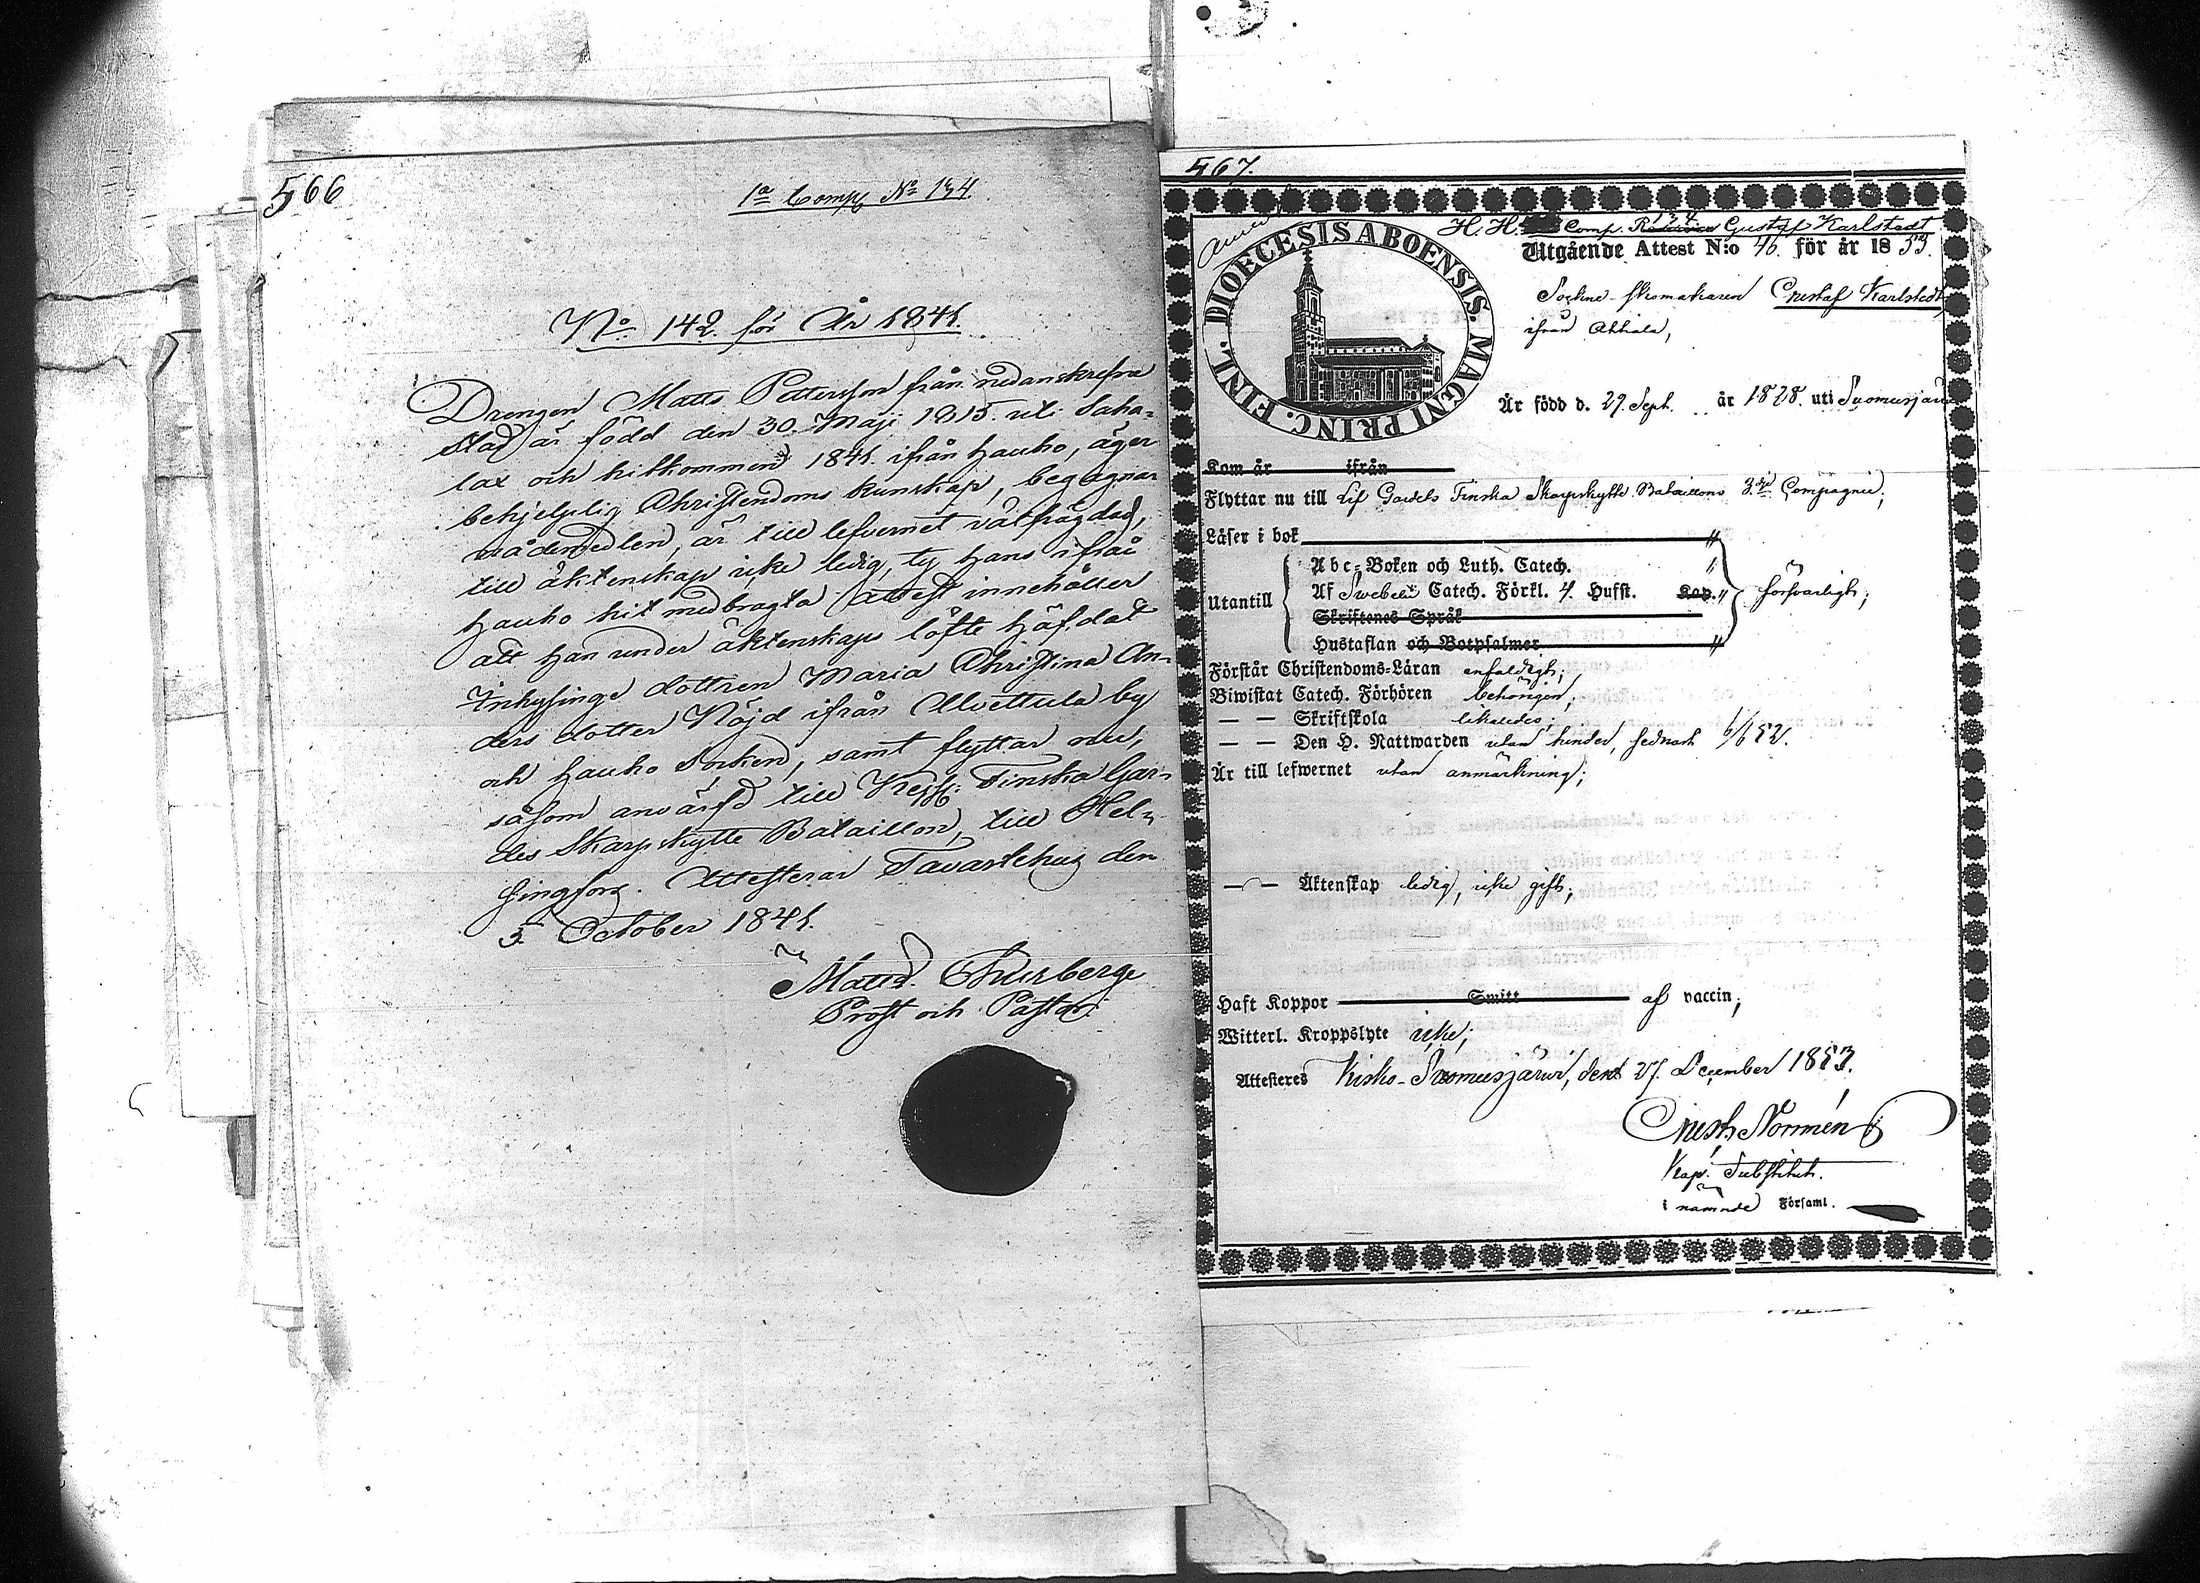 566
1a Comp No 134.
No 142. för År 1841.
Drengen Matts Pettersson från nedanskrefne
Stad är född den 30. Maji 1815. uti Saha-
lax och hitkommen 1841. ifrån Hauho, äger
behjelplig Christendoms kunskap, begagnar
nådemedlen, är till lefvernet välfrägdad,
till äktenskap icke ledig, ty hans ifrån
Hauho hit medbragta attest innehåller
att han under äktenskaps löfte häfdat
Inhysinge dottren Maria Christina An-
ders dotter Nöjd ifrån Alvettula by
och Hauho Socken, samt flyttar nu,
såsom anvärfd till Kejs. Finska Gar-
des Skarpskytte Bataillon, till Hel-
singfors. Attesterar Tavastehus den
5. October 1841.
Matts. Thurberg
Prost och Pastor.
567.
H. H. Comp. 134. Gustaf Karlstedt
DIOECESIS ABOENSIS. MAGNI PRINC. FINL.
Utgående Attest N:o 46. för år 1853.
Sockne-skomakaren Gustaf Karlstedt
ifrån Ahtiala,
Är född d. 29. Sept. år 1828. uti Suomusjärvi
Kom år ifrån
Flyttar nu till Lif Gardets Finska Skarpskytte Bataillons 3.dje Compagnie;
Läser i bok "
Utantill
Abc-Boken och Luth. Catech. "
Af Swebelii Catech. Förkl. 4. Hufst. Kap. " försvarligt;
Skriftenes Språk
Hustaflan och Botpsalmer "
Förstår Christendoms-Läran enfaldigt;
Biwistat Catech. Förhören behörigen;
— — Skriftskola likaledes;
— — Den H. Nattwarden utan hinder, sednast 6/6 52.
Är till lefwernet utan anmärkning;
— — Äktenskap ledig, icke gift;
Haft Koppor Smitt af vaccin;
Witterl. Kroppslyte icke;
Attesteres Kisko-Suomusjärvi, den 27. December 1853.
Gust. Normén
Kap. Substitut.
i nämnde Församl.